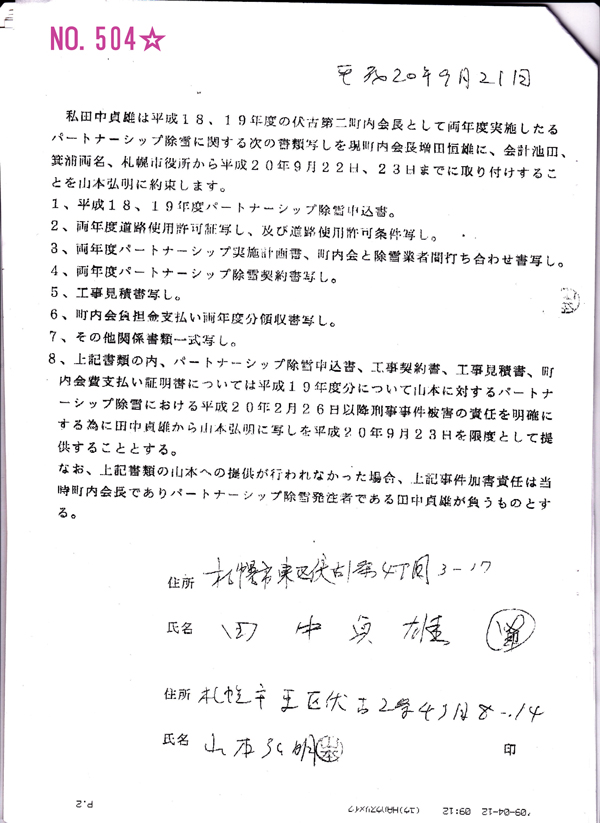 NO. 504☆
平成20年9月21日
私田中貞雄は平成18、19年度の伏古第二町内会長として両年度実施したる
パートナーシップ除雪に関する次の書類写しを現町内会長増田恒雄に、会計池田、
箕浦両名、札幌市役所から平成20年9月22日、23日までに取り付けするこ
とを山本弘明に約束します。
1、平成18、19年度パートナーシップ除雪申込書。
2、両年度道路使用許可証写し、及び道路使用許可条件写し。
3、両年度パートナーシップ実施計画書、町内会と除雪業者間打ち合わせ書写し。
4、両年度パートナーシップ除雪契約書写し。
5、工事見積書写し。
6、町内会負担金支払い両年度分領収書写し。
7、その他関係書類一式写し。
8、上記書類の内、パートナーシップ除雪申込書、工事契約書、工事見積書、町
内会費支払い証明書については平成19年度分について山本に対するパートナ
ーシップ除雪における平成20年2月26日以降刑事事件被害の責任を明確に
する為に田中貞雄から山本弘明に写しを平成20年9月23日を限度として提
供することとする。
なお、上記書類の山本への提供が行われなかった場合、上記事件加害責任は当
時町内会長でありパートナーシップ除雪発注者である田中貞雄が負うものとす
る。
住所 札幌市東区伏古 4丁目3-17
氏名 田中貞雄
住所 札幌市東区伏古2条4丁目8-14
氏名 山本弘明 印
P.2 (ユウ)HAハウスリメイク 09:12 '09-04-12